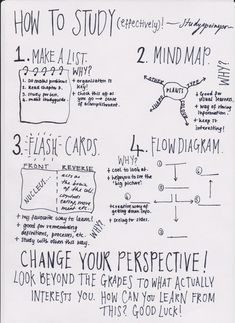 HOW TO STUDY (effectively)! — studyspinster
1. MAKE A LIST.
1. Do math problems
2. Read chapter 3.
3. study process.
4. make studyguide.
WHY?
+ organization is key!
+ check this off as you go → sense of accomplishment
2. MIND MAP.
PLANTS
WHY?
+ Good for visual learners.
+ way of storing information.
+ keep it interesting!
3. FLASH CARDS.
FRONT
REVERSE
NUCLEUS.
acts as the brain of the cell.
controls eating, movement, etc.
WHY?
+ my favourite way to learn!
+ good for remembering definitions, processes, etc.
+ Study with others this way.
4. FLOW DIAGRAM.
WHY?
+ cool to look at.
+ helps you to see the "big picture"!
+ creative way of getting down info.
+ seeing for sides.
CHANGE YOUR PERSPECTIVE!
LOOK BEYOND THE GRADES TO WHAT ACTUALLY
INTERESTS YOU. HOW CAN YOU LEARN FROM
THIS? GOOD LUCK!